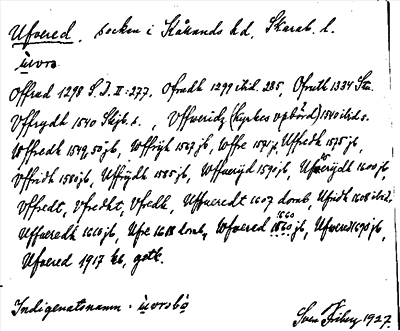 Ufvered. socken i Kåkands hd. Skarab. l.
ùvərə
Offrad 1298 S.D. II: 277. Ofradh 1299 ibid. 285. Ofruth 1334 Sts.
Uffrydh 1540 Skjb. s., Uffveridz (kyrkes upbörd) 1540 ibid. s.
Wffredh 1549, 50 jb, Wffrijh 1567 jb, Wffre 1571 jb, Uffredh 1575 jb,
Uffridh 1580 jb, Uffrijdh 1585 jb, Wffuerijd 1590 jb, Ufwerijdt 1600 jb,
Uffredt, Vfredht, Vfredh, Uffueredt 1607 domb, Ufridh 1608 ibid.
Uffueredh 1610 jb, Ufre 1618 domb, Wfvered 1660 jb, Ufvered 1690 jb,
Ufvered 1917 kb, gatk.
Indigenatsnamn: ùvərsbò
Sven Friberg 1927.